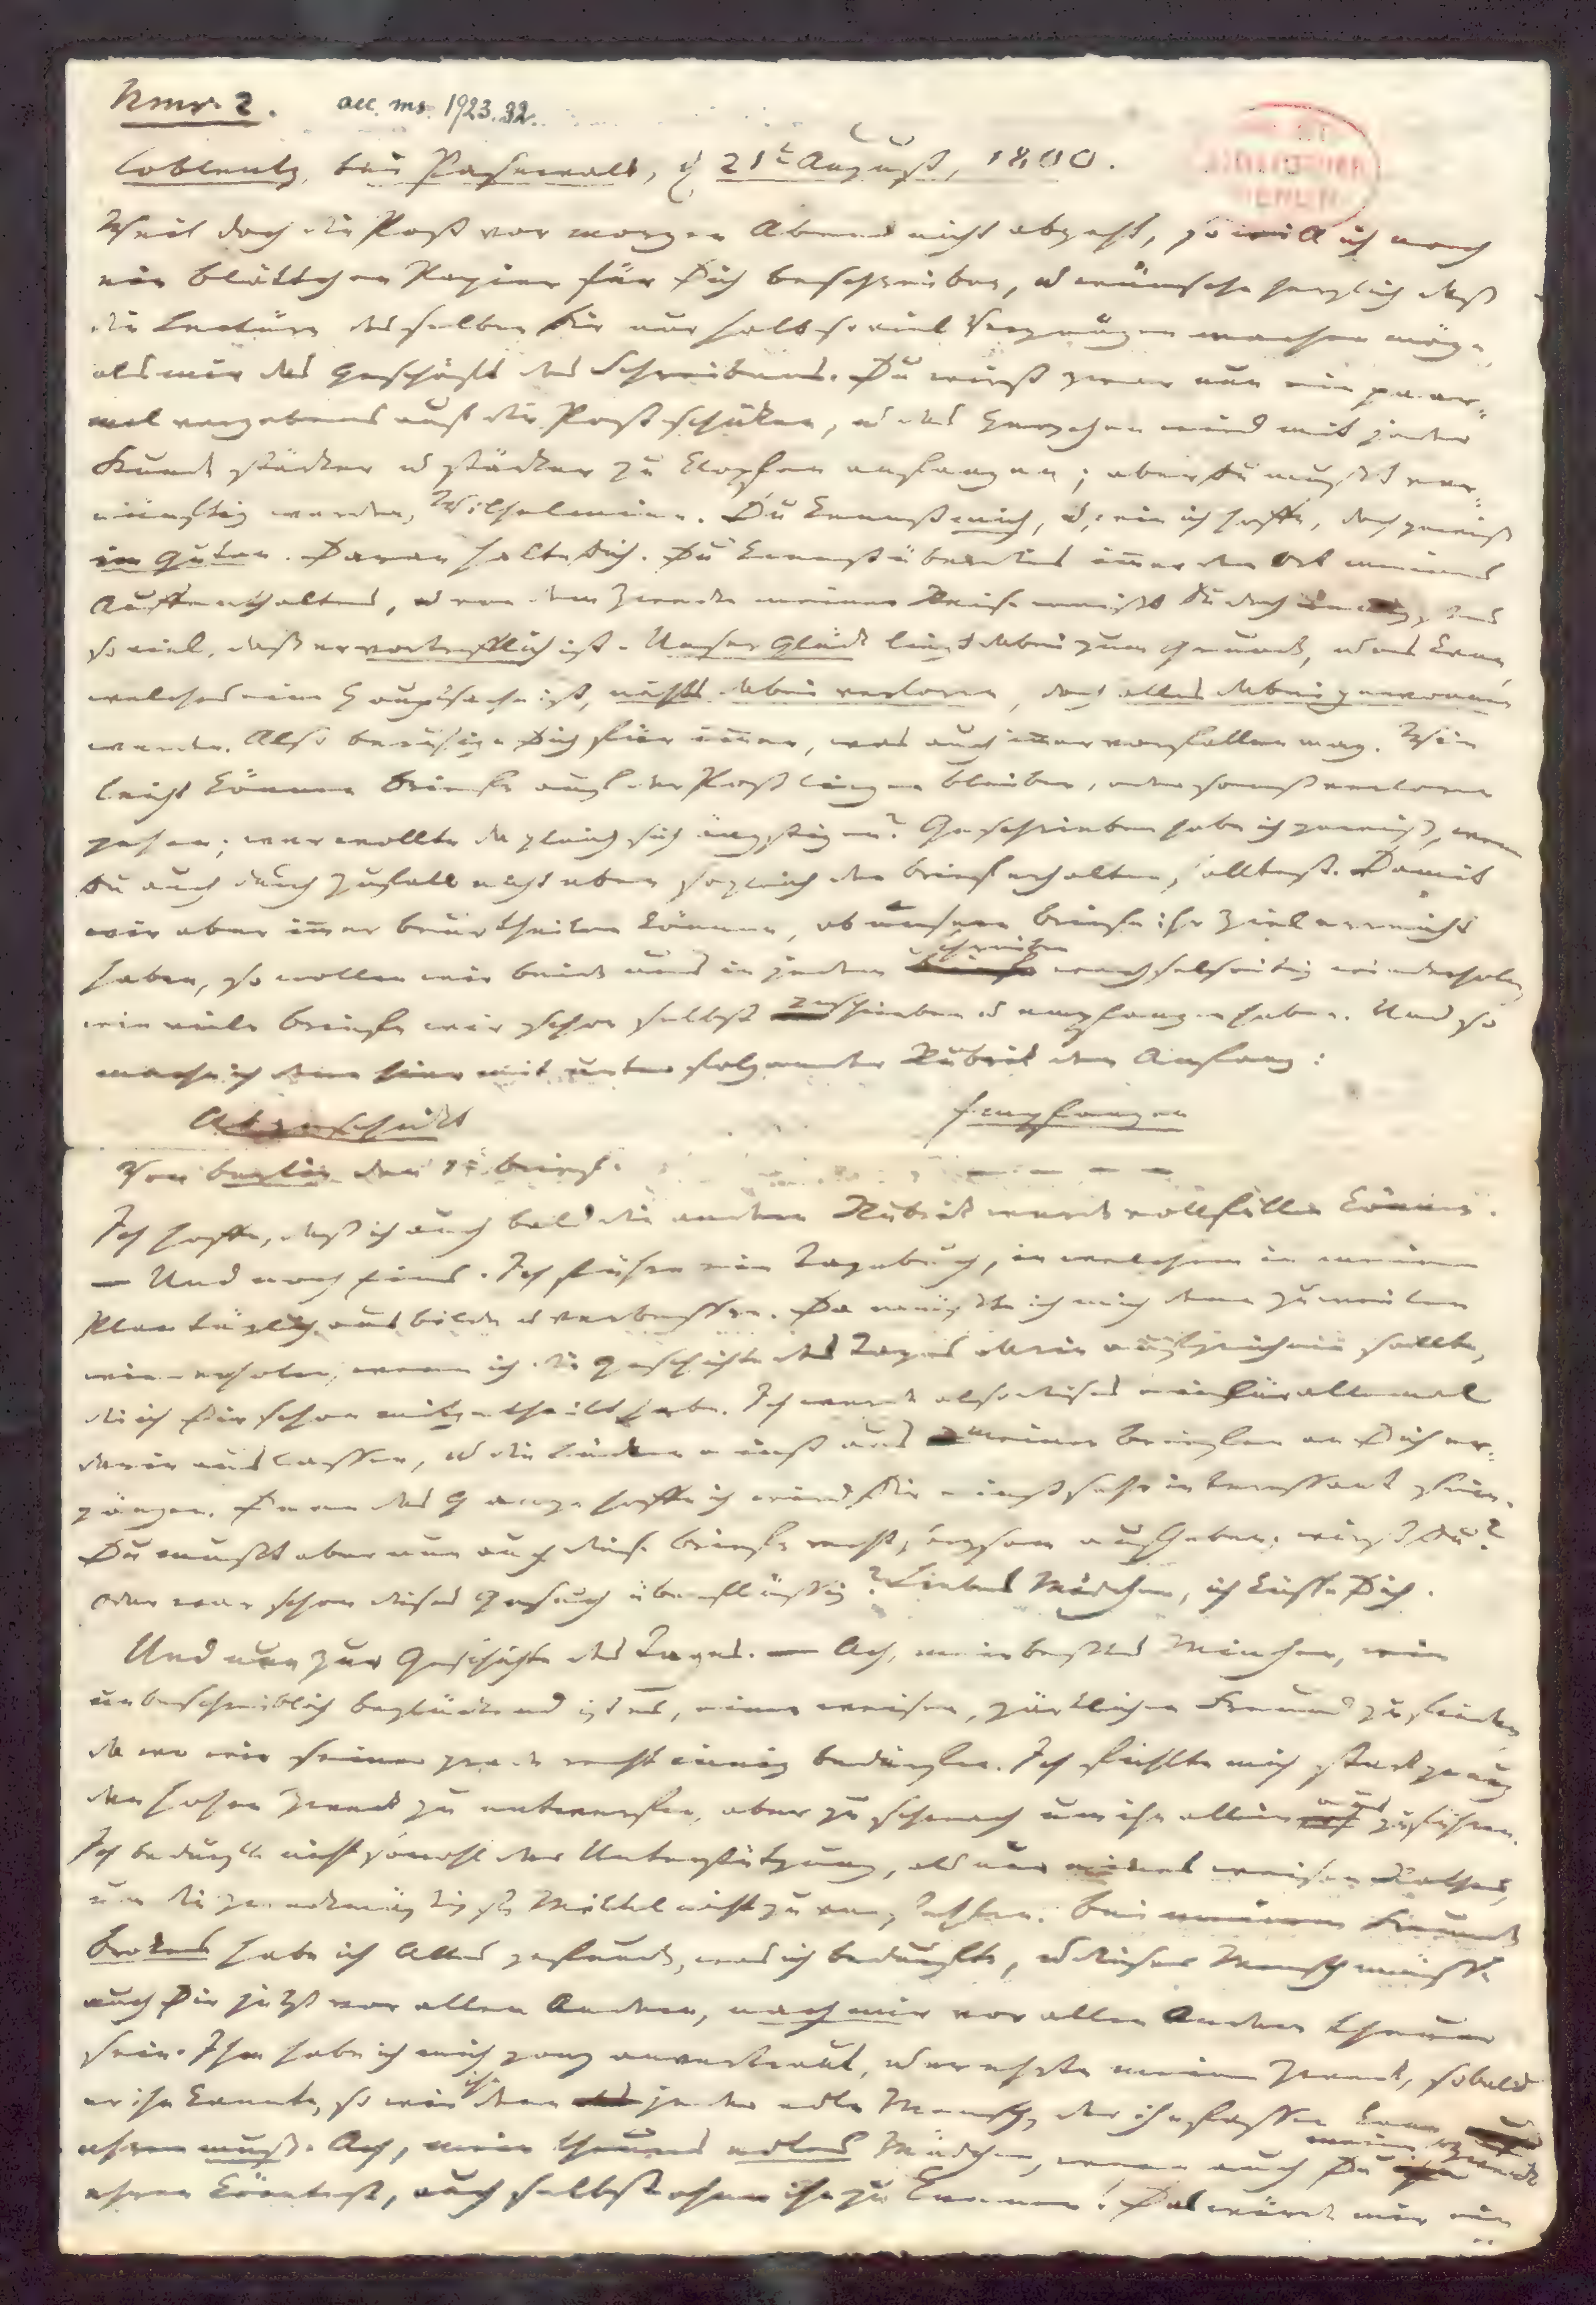 Nmr. 2. acc. ms. 1923. 32.
Coblentz, bei Pasewalk, d 21t August, 1800.
Weil doch die Post vor morgen Abend nicht abgeht, so will ich noch
ein Blättchen Papier für Dich beschreiben, u wünsche herzlich daß
die Lectüre desselben Dir nur halb so viel Vergnügen machen möge,
als mir das Geschäft des Schreibens. Du wirst zwar nun ein paar-
mal vergebens auf die Post schicken, u das Herzchen wird mit jeder
Stunde stärker u stärker zu klopfen anfangen; aber Du mußt ver-
nünftig werden, Wilhelmine. Du kennst mich, u, wie ich hoffe, doch gewiß
im Guten. Daran halte Dich. Du kennst überdies im̅er den Ort meines
Auffenthaltes, u von dem Zwecke meiner Reise weißt Du doch
so viel, daß er vortrefflich ist. Unser Glück liegt dabei zum Grunde, u es kann,
welches eine Hauptsache ist, nichts dabei verloren, doch alles dabei gewonnen
werden. Also beruhige Dich für im̅er, was auch im̅er vorfallen mag. Wie
leicht können Briefe auf der Post liegen bleiben, oder sonst verloren
gehen; wer wollte da gleich sich ängstigen? Geschrieben habe ich gewiß, wenn
Du auch durch Zufall nicht eben sogleich den Brief erhalten solltest. Damit
wir aber im̅er beurtheilen können, ob unsere Briefe ihr Ziel erreicht
haben, so wollen wir beide uns in jedem Schreiben wechselseitig wiederholen,
wie viele Briefe wir schon selbst geschrieben u empfangen haben. Und so
mache ich denn hiermit unter folgender Rubrik den Anfang:
Abgeschickt Empfangen
Von Berlin den 1t Brief. – – – –
Ich hoffe, daß ich auch bald die andere Rubrik werde vollfüllen können.
— Und noch Eins. Ich führe ein Tagebuch, in welchem ich meinen
Plan täglich ausbilde u verbessre. Da müßte ich mich denn zuweilen
wiederholen, wenn ich die Geschichte des Tages darin aufzeichnen sollte,
die ich Dir schon mitgetheilt habe. Ich werde also dieses ein für allemal
darin auslassen, u die Lücken einst aus meinen Briefen an Dich er-
gänzen. Denn das Ganze hoffe ich wird Dir einst sehr interessant sein.
Du mußt aber nun auch diese Briefe recht sorgsam aufheben; wirst Du?
Oder war schon dieses Gesuch überflüssig? Liebes Mädchen, ich küsse Dich.
Und nun zur Geschichte des Tages. — Ach, mein bestes Minchen, wie
unbeschreiblich beglückend ist es, einen weisen, zärtlichen Freund zu finden,
da wo wir seiner grade recht innig bedürfen. Ich fühlte mich stark genug
den hohen Zweck zu entwerfen, aber zu schwach um ihn allein auszuführen.
Ich bedurfte nicht sowohl der Unterstützung, als nur eines weisen Rathes,
um die zweckmäßigsten Mittel nicht zu verfehlen. Bei meinem Freunde
Brokes habe ich Alles gefunden, was ich bedurfte, u dieser Mensch müßte
auch Dir jetzt vor allen Andern, nach mir vor allen Andern theuer
sein. Ihm habe ich mich ganz anvertraut, u er ehrte meinen Zweck, sobald
er ihn kannte, so wie ihn denn jeder edle Mensch, der ihn fassen kann
ehren muß. Ach, mein theures edles Mädchen, wenn auch Du meinen Zweck
ehren könntest, auch selbst ohne ihn zu kennen! Das würde mir ein